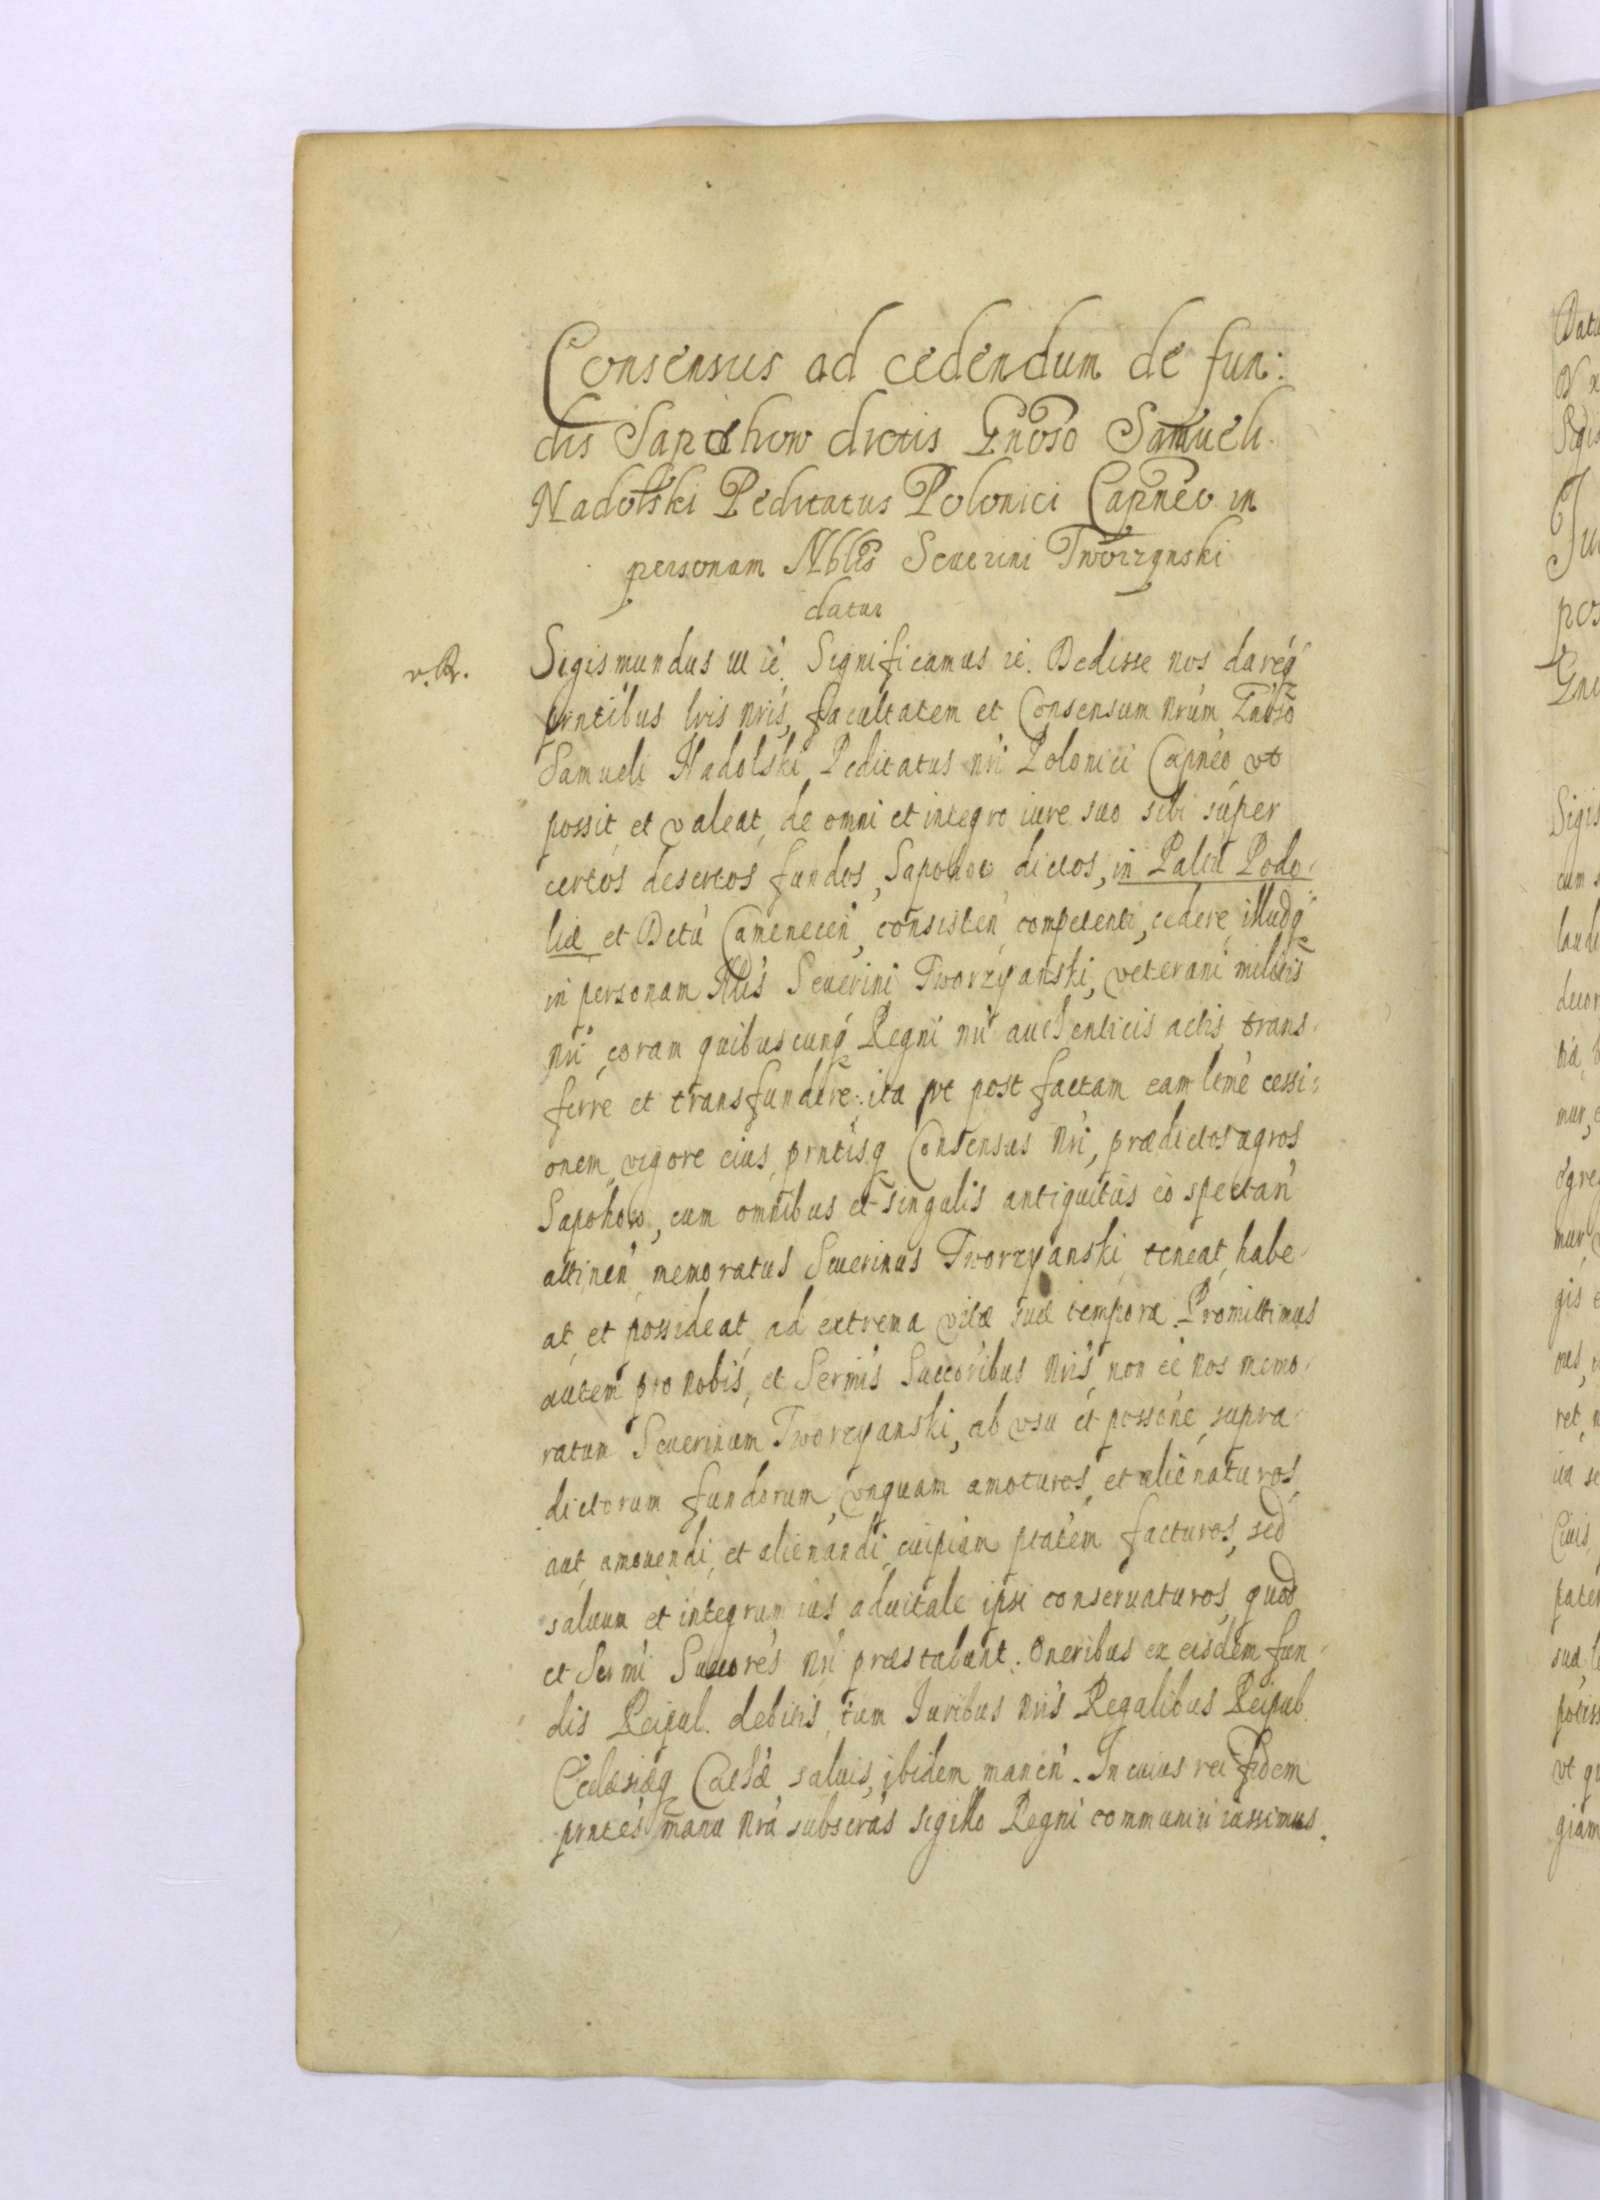 Consensus ad cedendum de fun:
dis Sapohow dictis Gnoso Samueli
Nadolski Peditatus Polonici Capneo in
personam Nblis Seuerini Tworzynski
datur
v. R. Sigismundus III ie. Significamus ie. Dedisse nos daréq
prntibus lris nris, facultatem et Consensum nrum Gnoso
Samueli Nadolski Peditatus nri Polonici Capneo vt
possit et valeat de omni et integro iure suo sibi super
certos desertos fundos, Sapohow dictos, in Palu Podo-
liæ et Dctu Camenecen consisten competenti, cedere, illudq
in personam Nblis Seuerini Tworzyanski, veterani militis
nri coram quibuscunq Regni nri authenticis actis trans-
ferre et transfundere: ita vt post factam eam lrme cessi:
onem vigore eius prntisq Consensus nri, prædictos agros
Sapohow, cum omnibus et singulis antiquitus eo spectan
attinen memoratus Seuerinus Tworzyanski teneat, habe-
at, et possideat, ad extrema vitæ suæ tempora. Promittimus
autem pro nobis, et Sermis Succoribus nris non ee nos memo-
ratum Seuerinum Tworzyanski, ab vsu et possone supra-
dictorum fundorum vnquam amoturos, et alienaturos,
aut amouendi, et alienandi cuipiam ptatem facturos, sed
saluum et integrum ius aduitale ipsi conseruaturos, quod
et Sermi Succores nri præstabunt. Oneribus ex eisdem fun-
dis Reipul. debitis, tum Iuribus nris Regalibus Reipub.
Ecclesiæq Cathæ saluis, ibidem manen. In cuius rei fidem
prntes manu nra subscras sigillo Regni communiri iussimus.